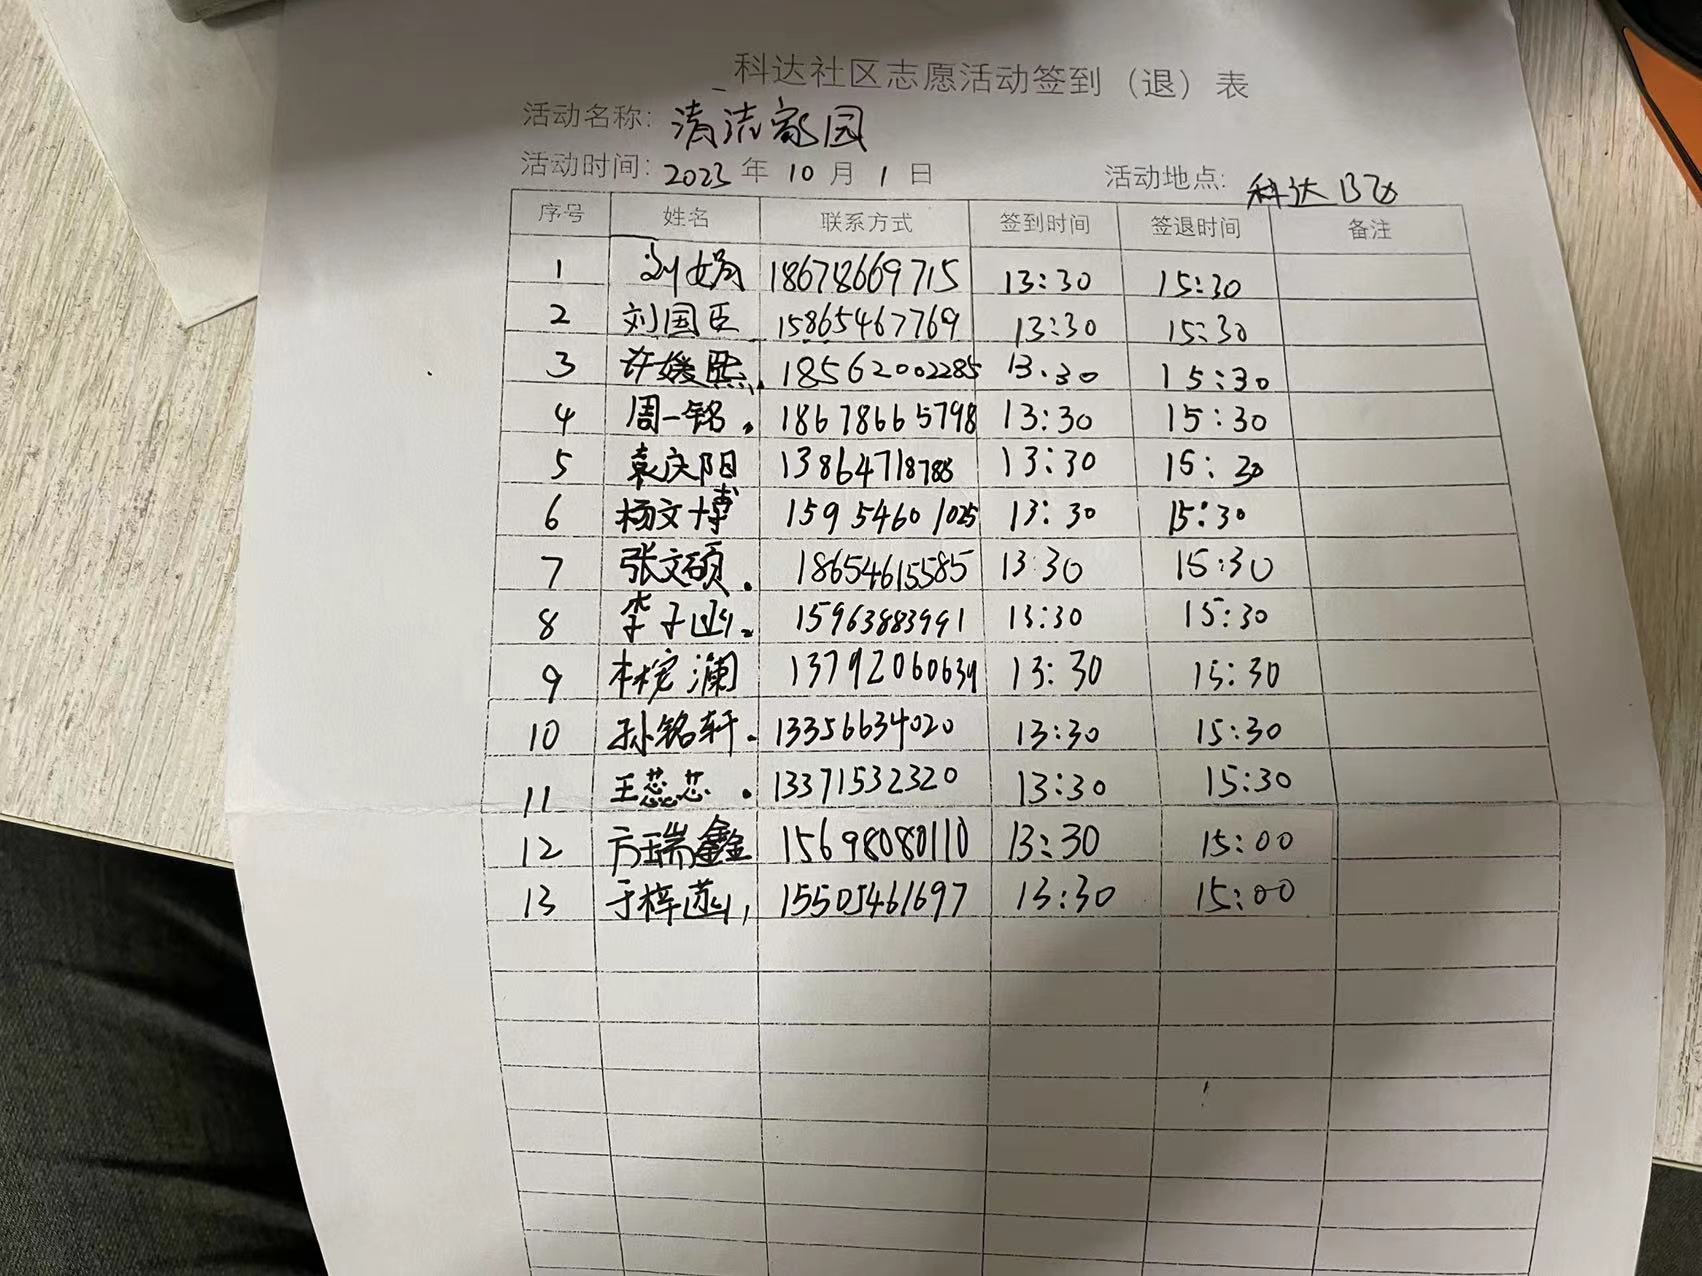 科达社区志愿活动签到（退）表
活动名称: 清洁家园
活动时间: 2023 年 10 月 1 日 活动地点: 科达
序号 姓名 联系方式 签到时间 签退时间 备注
1 刘娟 18678669715 13:30 15:30
2 刘国臣 15865467769 13:30 15:30
3 许媛熙 18562002285 13:30 15:30
4 周一铭 18678665798 13:30 15:30
5 袁庆阳 13864718788 13:30 15:30
6 杨文博 15954601025 13:30 15:30
7 张文硕 18654615585 13:30 15:30
8 李子函 15963883991 13:30 15:30
9 澜 13792060639 13:30 15:30
10 孙铭轩 13356634020 13:30 15:30
11 王蕊芯 13371532320 13:30 15:30
12 方瑞鑫 15698080110 13:30 15:00
13 于梓菡 15505461697 13:30 15:00